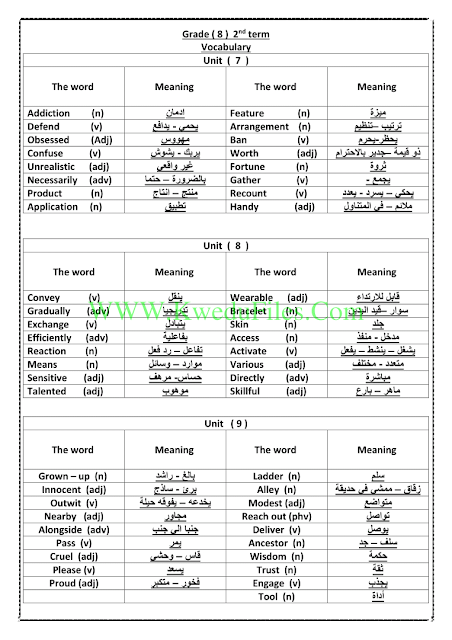 Grade ( 8 ) 2nd term
Vocabulary
Unit ( 7 )
The word Meaning The word Meaning
Addiction (n) ادمان Feature (n) ميزة
Defend (v) يحمي - يدافع Arrangement (n) ترتيب –تنظيم
Obsessed (Adj) مهووس Ban (v) يحظر-يحرم
Confuse (v) يربك - يشوش Worth (adj) ذو قيمة –جدير بالاحترام
Unrealistic (adj) غير واقعي Fortune (n) ثروة
Necessarily (adv) بالضرورة – حتما Gather (v) يجمع -
Product (n) منتج – انتاج Recount (v) يحكي – يسرد - يعدد
Application (n) تطبيق Handy (adj) ملائم – في المتناول
Unit ( 8 )
The word Meaning The word Meaning
Convey (v) ينقل Wearable (adj) قابل للارتداء
Gradually (adv) تدريجيا Bracelet (n) سوار –قيد اليدين
WWW.KwedaFiles.Com
Exchange (v) يتبادل Skin (n) جلد
Efficiently (adv) بفاعلية Access (n) مدخل - منفذ
Reaction (n) تفاعل – رد فعل Activate (v) يشغل – ينشط – يفعل
Means (n) موارد – وسائل Various (adj) متعدد - مختلف
Sensitive (adj) حساس- مرهف Directly (adv) مباشرة
Talented (adj) موهوب Skillful (adj) ماهر – بارع
Unit ( 9 )
The word Meaning The word Meaning
Grown – up (n) بالغ - راشد Ladder (n) سلم
Innocent (adj) برئ - ساذج Alley (n) زقاق – ممشي في حديقة
Outwit (v) يخدعه – يفوقه حيلة Modest (adj) متواضع
Nearby (adj) مجاور Reach out (phv) تواصل
Alongside (adv) جنبا الي جنب Deliver (v) يوصل
Pass (v) يمر Ancestor (n) سلف – جد
Cruel (adj) قاس – وحشي Wisdom (n) حكمة
Please (v) يسعد Trust (n) ثقة
Proud (adj) فخور – متكبر Engage (v) يجذب
Tool (n) أداة